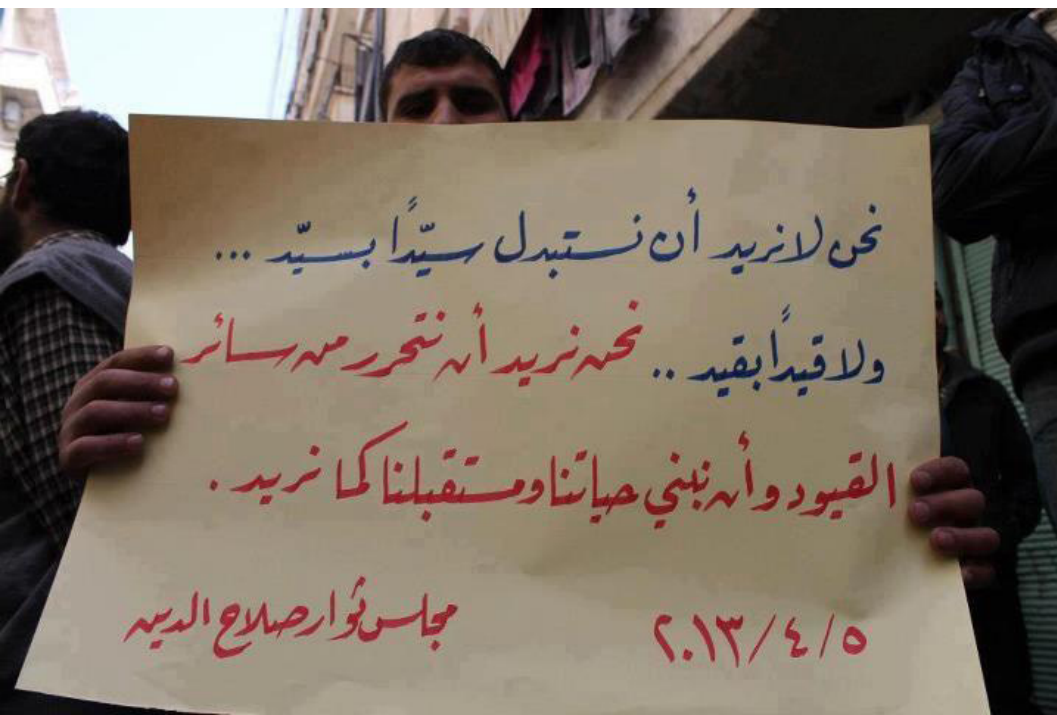 نحن لا نريد أن نستبدل سيّداً بسيّد ...
ولا قيداً بقيد .. نحن نريد أن نتحرر من سائر
القيود وأن نبني حياتنا ومستقبلنا كما نريد .
٢٠١٣/٤/٥ مجلس ثوار صلاح الدين